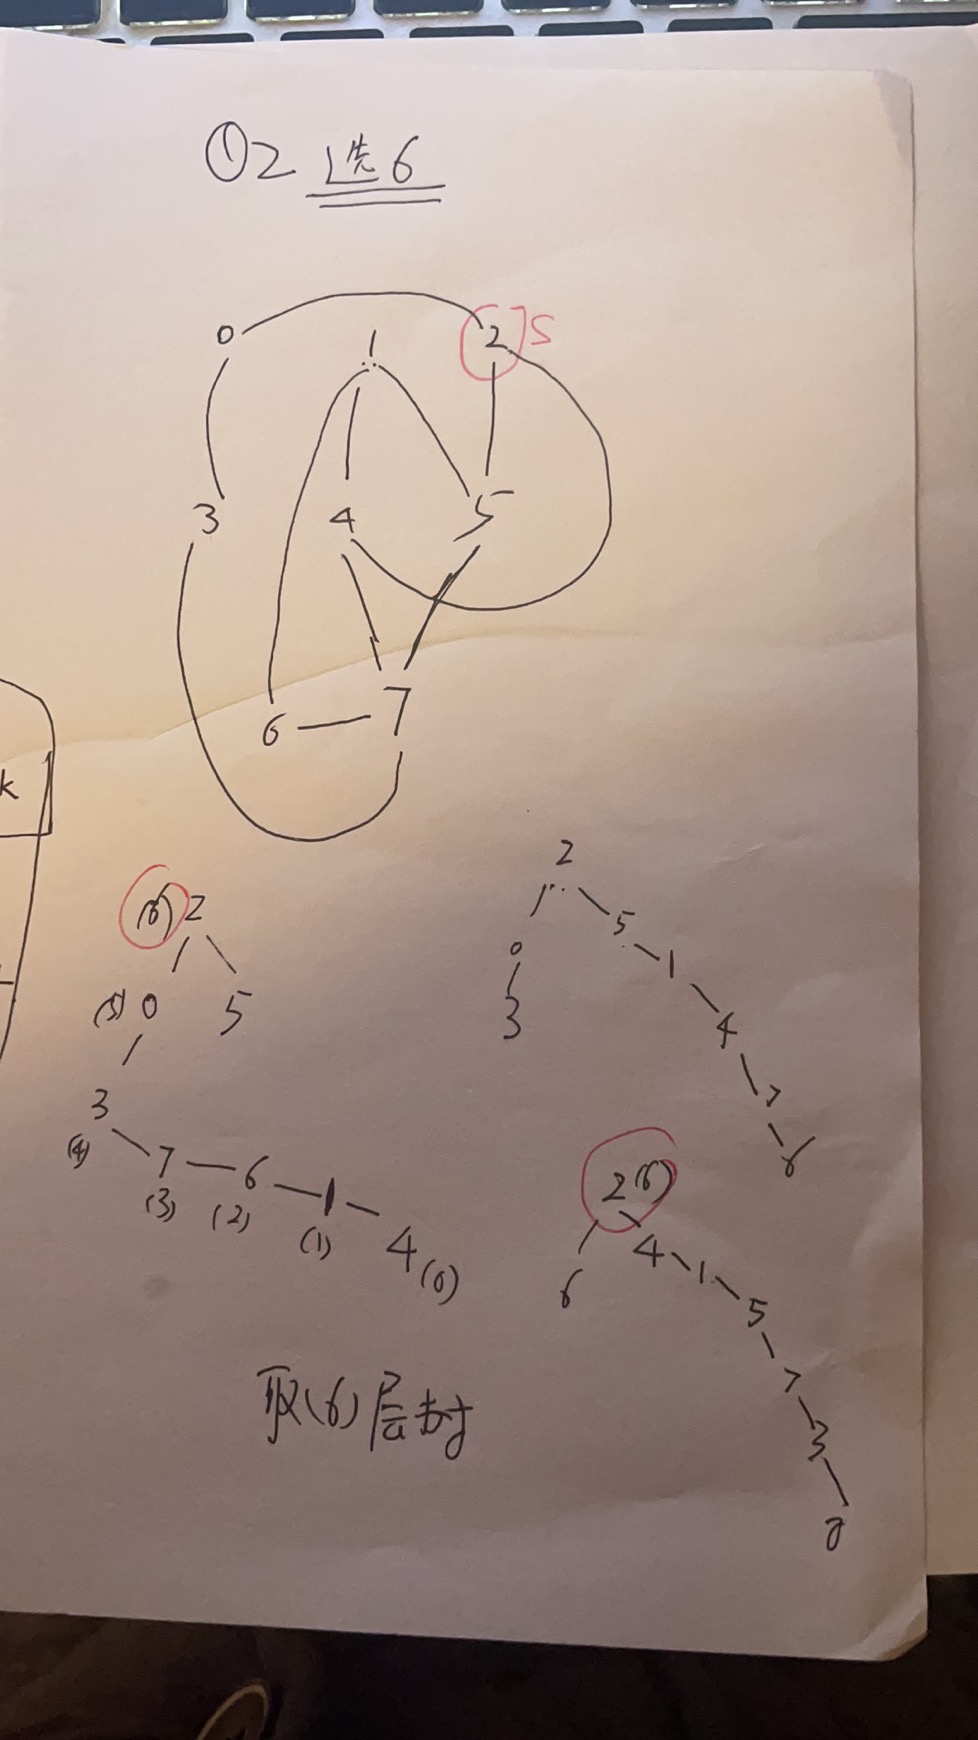 ①2 选6
0 1 2 S
3 4 5
6 7
k
(6) 2
(5) 0 5
3
(4) 7 6 1 4
(3) (2) (1) (0)
2
0 5 1
3 4
7
6
2(6)
6 4 1 5
7
3
0
取(6)层时